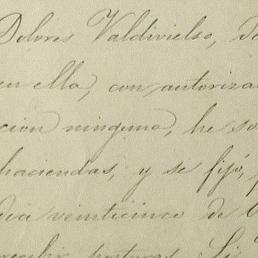 Dolores Valdivielso,
en ella, con autoriza
cion ninguna, he so
haciendas, y se fijó,
dia veinticinco de
postura. Si